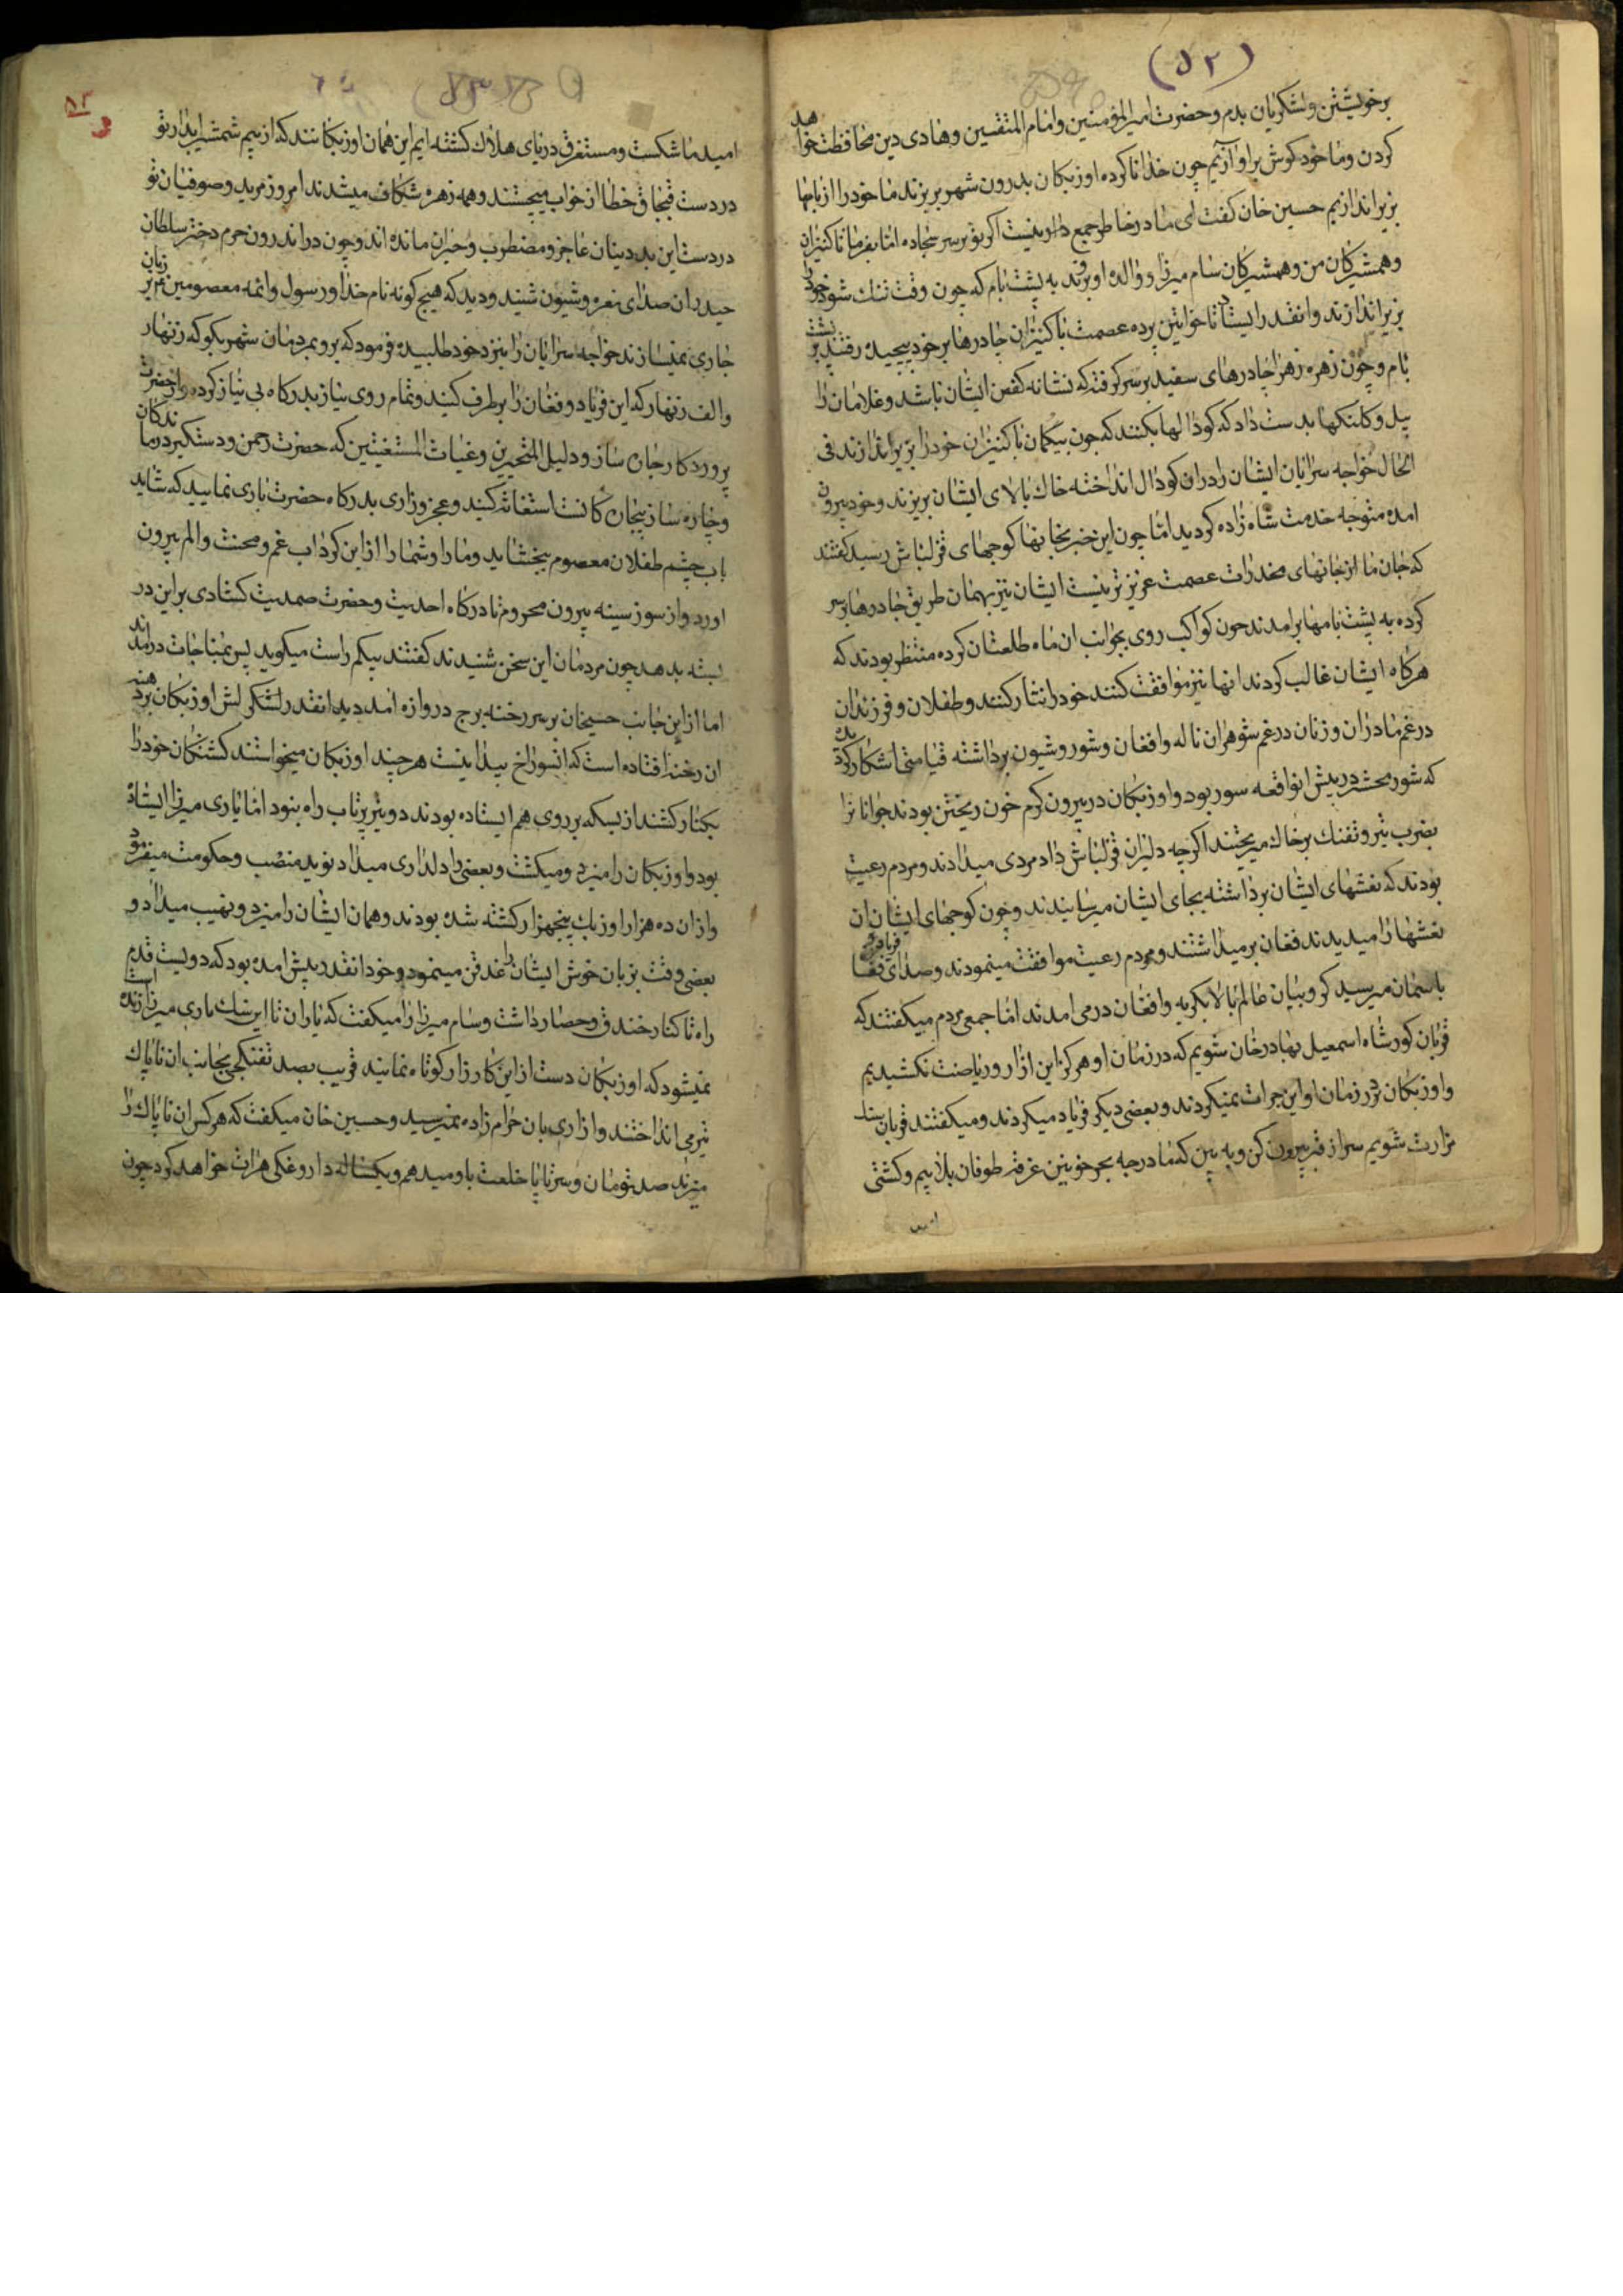 (۵۲)
برخویشتن ولشکریان بدم وحضرت امیرالمؤمنین وامام المتقین وهادی دین محافظت خواهد
کردن وما خود کوش براوازیم چون خدا ناکرده اوزبکان بدرون شهر بریزند ما خود را از بامها
بزیر اندازیم حسین خان کفت ای مادر خاطر جمع دار نیست اکر تو برسر سجاده اما بفرما تا کنیزان
وهمشیرکان من وهمشیرکان سام میرزا ووالده او بروند به پشت بام که چون وقت تنک شود خود را
بزیر اندازند وانقدر ایستاد تا خواتین پرده عصمت با کنیزان چادرها برخود پیچیده رفتند بر پشت
بام وچون زهره زهرا چادرهای سفید برسر کرفته که نشانه کفن ایشان باشد وغلامان را
بیل وکلنکها بدست داد که کودالها بکنند که چون بیکمان با کنیزان خود را بزیر اندازند فی
الحال خواجه سرایان ایشان را دران کودال انداخته خاک بالای ایشان بریزند وخود بیرون
امده متوجه خدمت شاه زاده کردید اما چون این خبر بخانهای کوچهای قزلباش رسید کفتند
که جان ما از جانهای مخدرات عصمت عزیزتر نیست ایشان نیز بهمان طریق چادرها برسر
کرده به پشت بامها برامدند چون کواکب روی بجوانب ان ماه طلعتان کرده منتظر بودند که
هرکاه ایشان غالب کردند انها نیز موافقت کنند خود را نثار کنند وطفلان وفرزندان
درغم مادران وزنان درغم شوهران ناله وافغان وشور وشیون برداشته قیامتی اشکار کردند
که شور محشر در پیش انواقعه سور بود واوزبکان در بیرون کرم خون ریختن بودند جوانانرا
بضرب تیر وتفنک برخاک میریختند اکرچه دلیران قزلباش داد مردی میدادند ومردم رعیت
بودند که نعشهای ایشان برداشته بجای ایشان میرسانیدند وچون کوچهای ایشان ان
نعشها را میدیدند فغان برمیداشتند ومردم رعیت موافقت مینمودند وصدای فغا
باسمان میرسید کروبیان عالم بالا بکریه وافغان درمی امدند اما جمعی مردم میکفتند که
قربان کور شاه اسمعیل بهادرخان شویم که در زمان او هرکز این ازار وریاضت نکشیدیم
واوزبکان در زمان او این جرات نمیکردند وبعضی دیکر فریاد میکردند ومیکفتند قربان
مزارت شویم سر از قبر بیرون کن وبه بین که ما درچه بحر خونین غرقه طوفان بلاییم وکشتی
امید
۵۳
امید ما شکست ومستغرق دریای هلاک کشته ایم این همان اوزبکانند که از بیم شمشیر ابدار تو
در دست قبچاق خطا از خواب میجستند وهمه زهره شکاف میشدند امروز مرید وصوفیان تو
در دست این بددینان عاجز ومضطرب وحیران مانده اند وچون در اندرون حرم دختر سلطان
حیدر ان صدای نعره وشیون شنید ودید که هیچکونه نام خدا ورسول وائمه معصومین بر زبان
جاری نمیسازند خواجه سرایان را بنزد خود طلبیده فرمود که برو بمردمان شهر بکو که زنهار
والف زنهار که این فریاد وفغان را برطرف کنید وتمام روی نیاز بدرکاه بی نیاز کرده وازحضرت
پروردکار جان ساز ودلیل المتحیرین وغیاث المستغیثین که حضرت رحمن ودستکیر درماندکان
وچاره ساز بیچارکانست استغاثه کنید وعجز وزاری بدرکاه حضرت باری نمایید که شاید
باب چشم طفلان معصوم ببخشاید وما را وشما را از این کرداب غم ومحنت والم بیرون
اورد واز سوز سینه بیرون محروم تا درکاه احدیت وحضرت صمدیت کشادی براین در
بسته بدهد چون مردمان این سخن شنیدند کفتند بیکم راست میکوید پس بمناجات درامدند
اما از این جانب حسیخان برسر رخنه برج دروازه امد دید انقدر لشکر لش اوزبکان بر
ان رخنه افتاده است که انسوراخ پیدا نیست هرچند اوزبکان میخواستند کشتکان خود را
بکنار کشند ازبسکه برروی هم ایستاده بودند دو تیر پرتاب راه بنود اما یاری میرزا ایستاده
بود واوزبکان را میزد ومیکشت وبعضی را دلداری میداد نوید منصب وحکومت میفرمود
وازان ده هزار اوزبک پنجهزار کشته شده بودند وهمان ایشان را میزد ونهیب میداد و
بعضی وقت بزبان خوش ایشان را غدقن مینمود وخود انقدر پیش امده بود که دویست قدم
راه تا کنار خندق وحصار داشت وسام میرزا را میکفت که یاران تا این سک یاری میرزا زنده است
نمیشود که اوزبکان دست از این کارزار کوتاه نمایند قریب بصد تفنکچی بجانب ان ناپاک
تیر می انداختند وازاری بان حرام زاده نمیرسید وحسین خان میکفت که هرکس ان ناپاک را
میزند صد تومان وسرتاپا خلعت باو میدهم ویکساله داروغکی هرات خواهد کرد چون